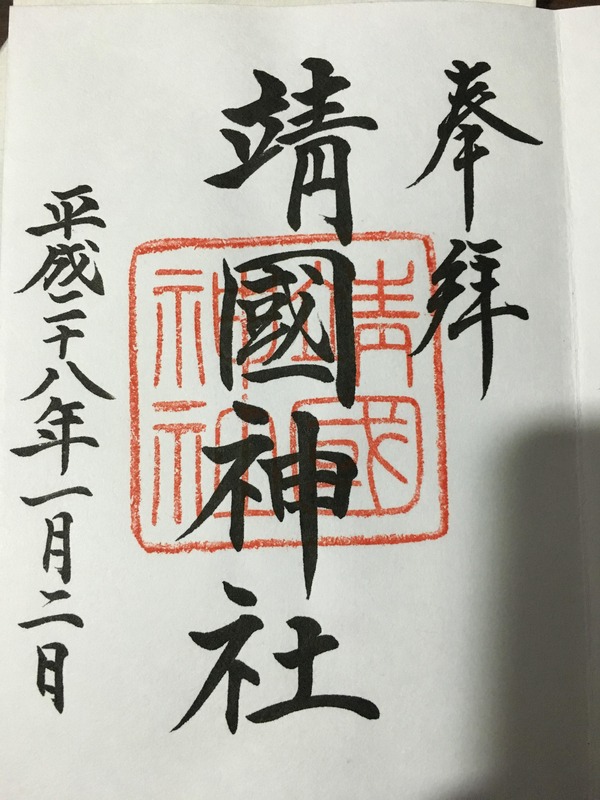 奉拝
靖國神社
靖國神社
平成二十八年一月二日